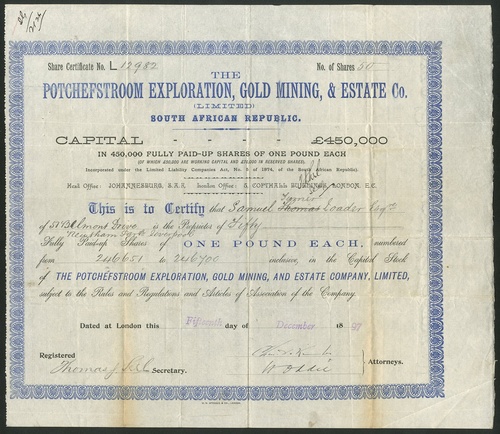 Share Certificate No. L 12982 No. of Shares 50
THE
POTCHEFSTROOM EXPLORATION, GOLD MINING, & ESTATE Co.
(LIMITED)
SOUTH AFRICAN REPUBLIC.
CAPITAL - - - - £450,000
IN 450,000 FULLY PAID-UP SHARES OF ONE POUND EACH
Incorporated under the Limited Liability Companies Act, No. 5 of 1874, of the South African Republic).
Head Office: JOHANNESBURG, S.A.R. London Office: 5, COPTHALL BUILDINGS, LONDON, E.C.
This is to Certify that Samuel Thomas Loader Esqre
of 57 Belmont Grove is the Proprietor of Fifty
Newsham Park Liverpool
Fully Paid-up Shares of ONE POUND EACH, numbered
from 246651 to 246700 inclusive, in the Capital Stock
of THE POTCHEFSTROOM EXPLORATION, GOLD MINING, AND ESTATE COMPANY, LIMITED,
subject to the Rules and Regulations and Articles of Association of the Company.
Dated at London this Fifteenth day of December 1897
Registered
Thomas J. Secretary. Attorneys.